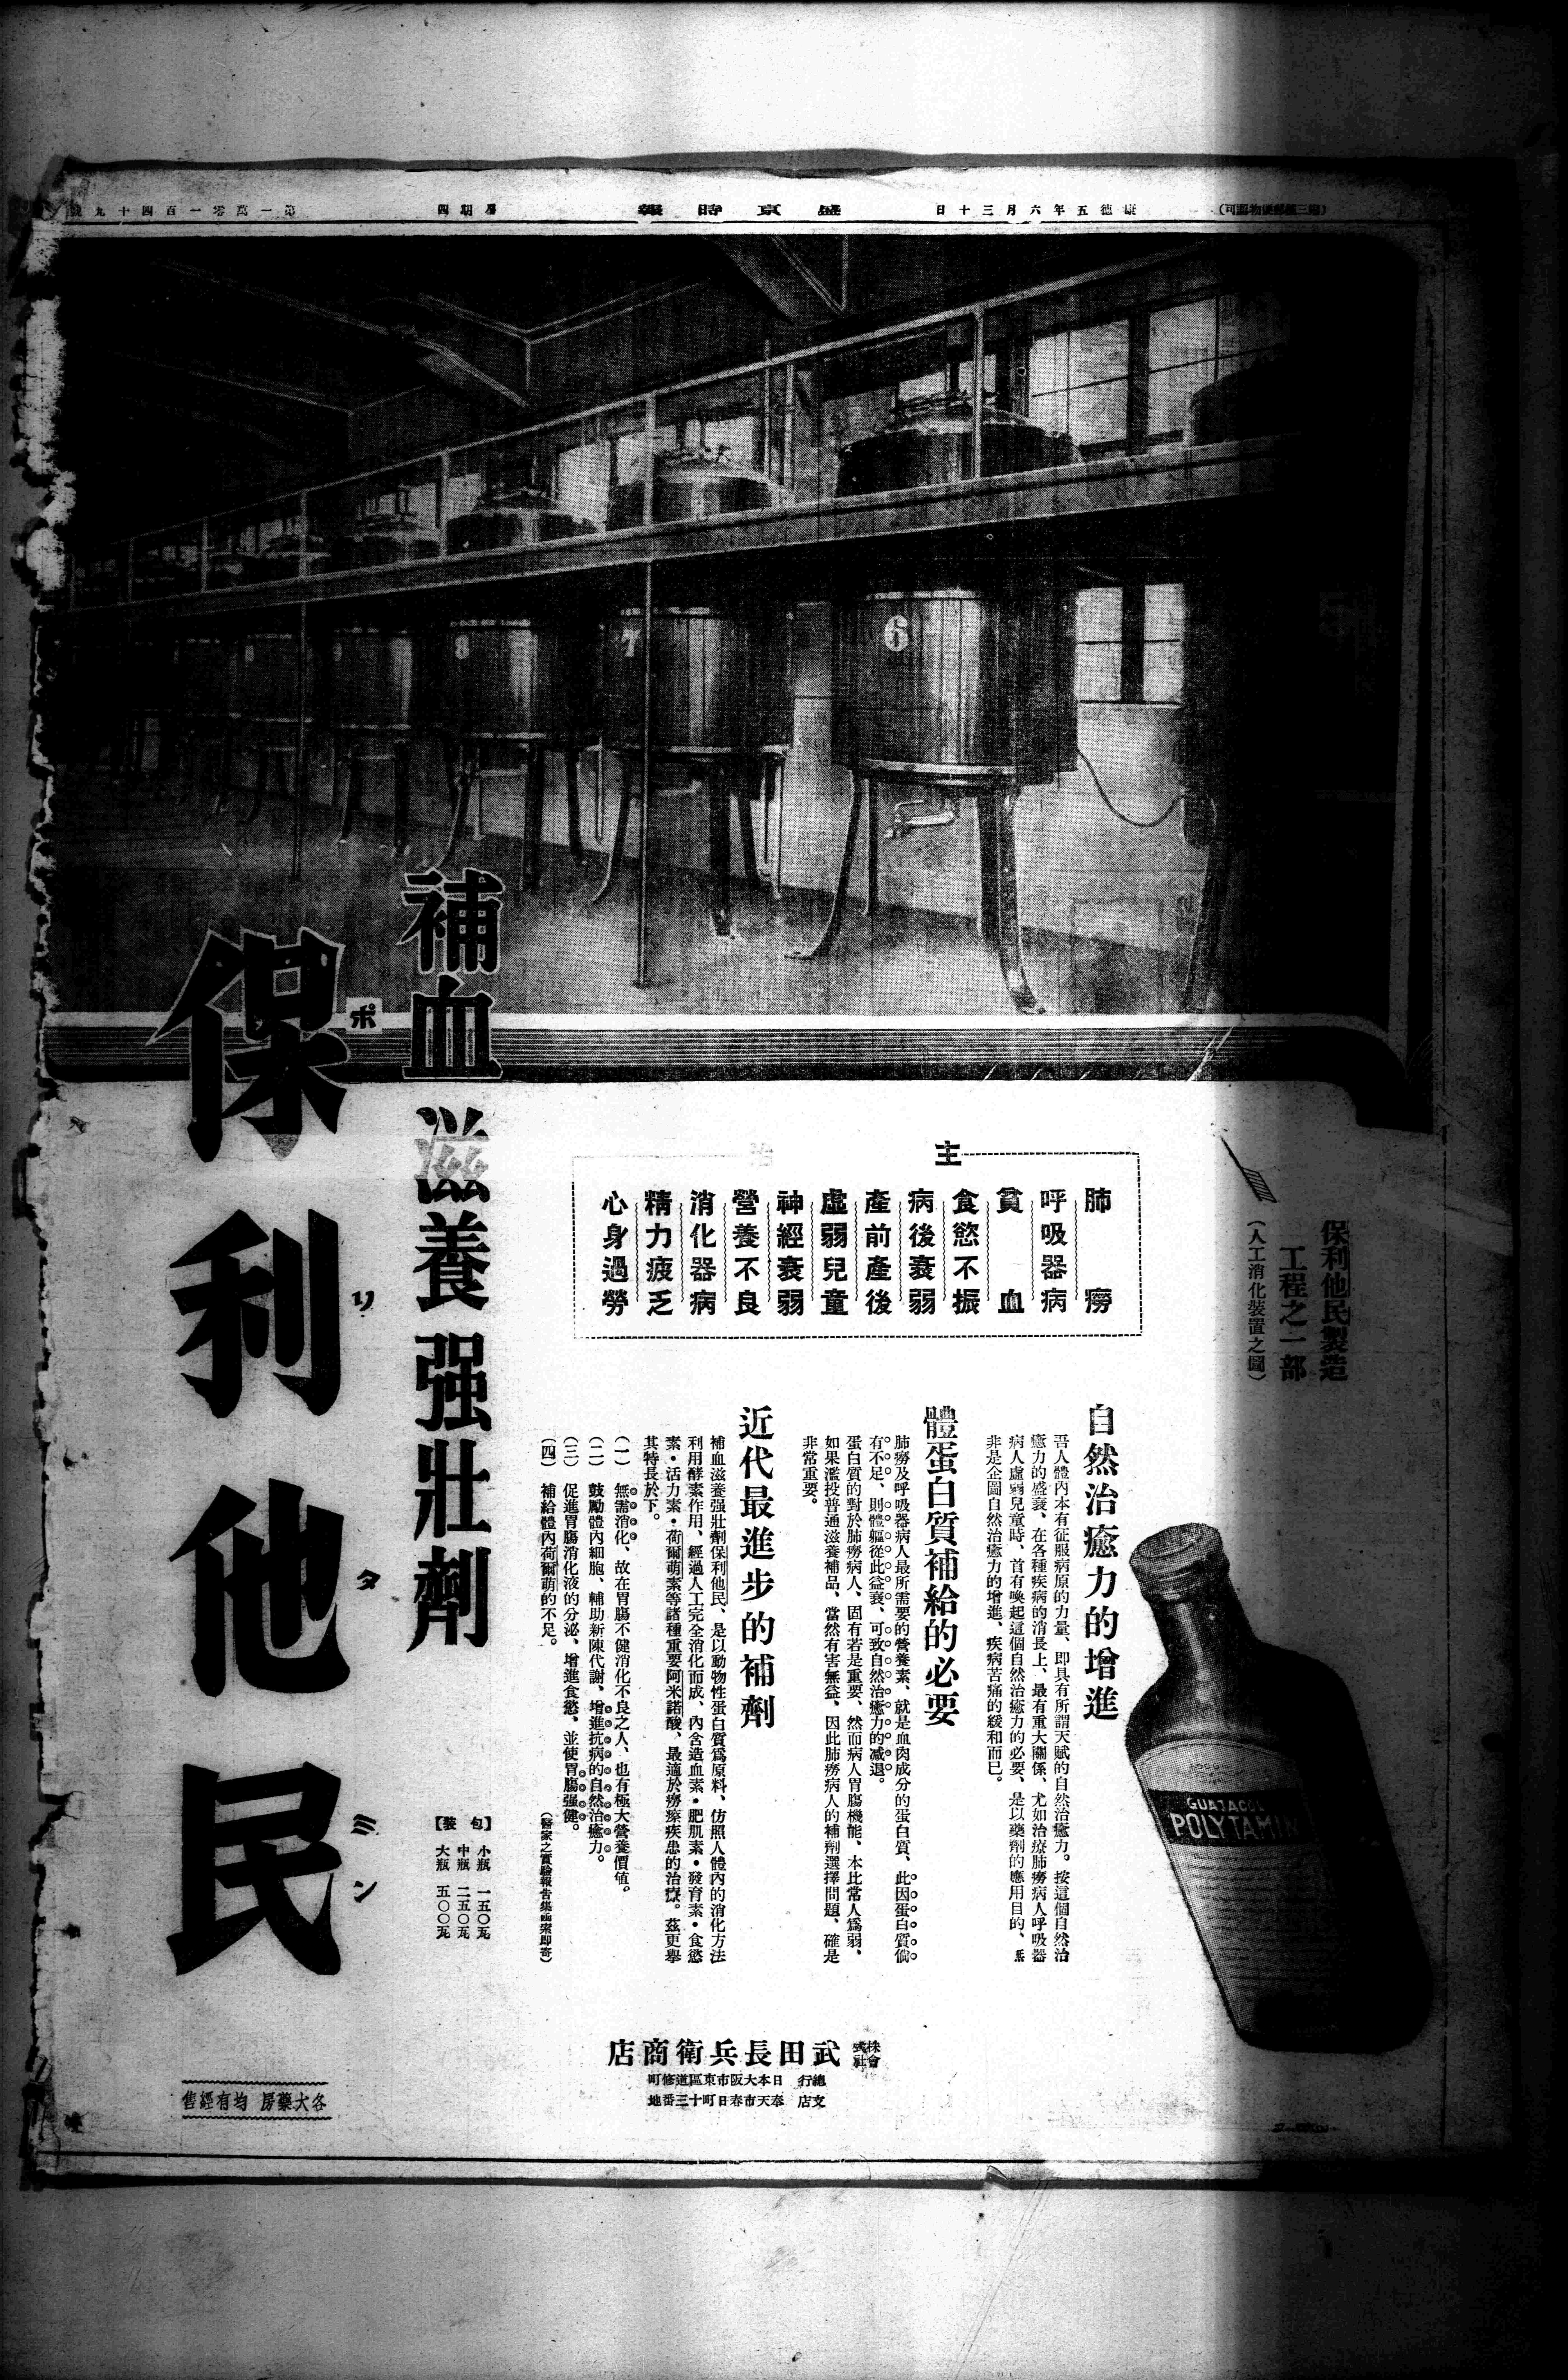 (第三種郵便物認可)
康德五年六月三十日
盛京時報
星期四
第一萬零一百四十九號
6
7
8
9
保利他民製造
工程之一部
(人工消化裝置之圖)
GUAJACOL
POLYTAMIN
主治
肺癆
呼吸器病
貧血
食慾不振
病後衰弱
產前產後
虛弱兒童
神經衰弱
營養不良
消化器病
精力疲乏
心身過勞
自然治癒力的增進
吾人體內本有征服病原的力量、即具有所謂天賦的自然治癒力。按這個自然治
癒力的盛衰、在各種疾病的消長上、最有重大關係、尤如治療肺癆病人呼吸器
病人虛弱兒童時、首有喚起這個自然治癒力的必要、是以藥劑的應用目的、無
非是企圖自然治癒力的增進、疾病苦痛的緩和而已。
體蛋白質補給的必要
肺癆及呼吸器病人最所需要的營養素、就是血肉成分的蛋白質、此因蛋白質倘
有不足、則體軀從此益衰、可致自然治癒力的减退。
蛋白質的對於肺癆病人、固有若是重要、然而病人胃腸機能、本比常人爲弱、
如果濫投普通滋養補品、當然有害無益、因此肺癆病人的補劑選擇問題、確是
非常重要。
近代最進步的補劑
補血滋養强壯劑保利他民、是以動物性蛋白質爲原料、仿照人體內的消化方法
利用酵素作用、經過人工完全消化而成、內含造血素・肥肌素・發育素・食慾
素・活力素・荷爾萌素等諸種重要阿米諾酸、最適於癆瘵疾患的治療。茲更擧
其特長於下。
(一) 無需消化、故在胃腸不健消化不良之人、也有極大營養價値。
(二) 鼓勵體內細胞、輔助新陳代謝、增進抗病的自然治癒力。
(三) 促進胃腸消化液的分泌、增進食慾、並使胃腸强健。
(四) 補給體內荷爾萌的不足。
(醫家之實驗報告集函索即寄)
補血 滋養 强壯劑
【包裝】
小瓶 一五〇瓦
中瓶 二五〇瓦
大瓶 五〇〇瓦
保利他民
ポリタミン
株式會社
武田長兵衛商店
總行 日本大阪市東區道修町
支店 奉天市春日町十三番地
各大藥房 均有經售